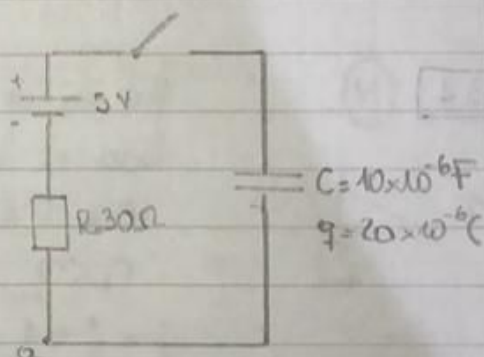 +
5V
-
R=30Ω
C=10×10⁻⁶F
q=20×10⁻⁶C